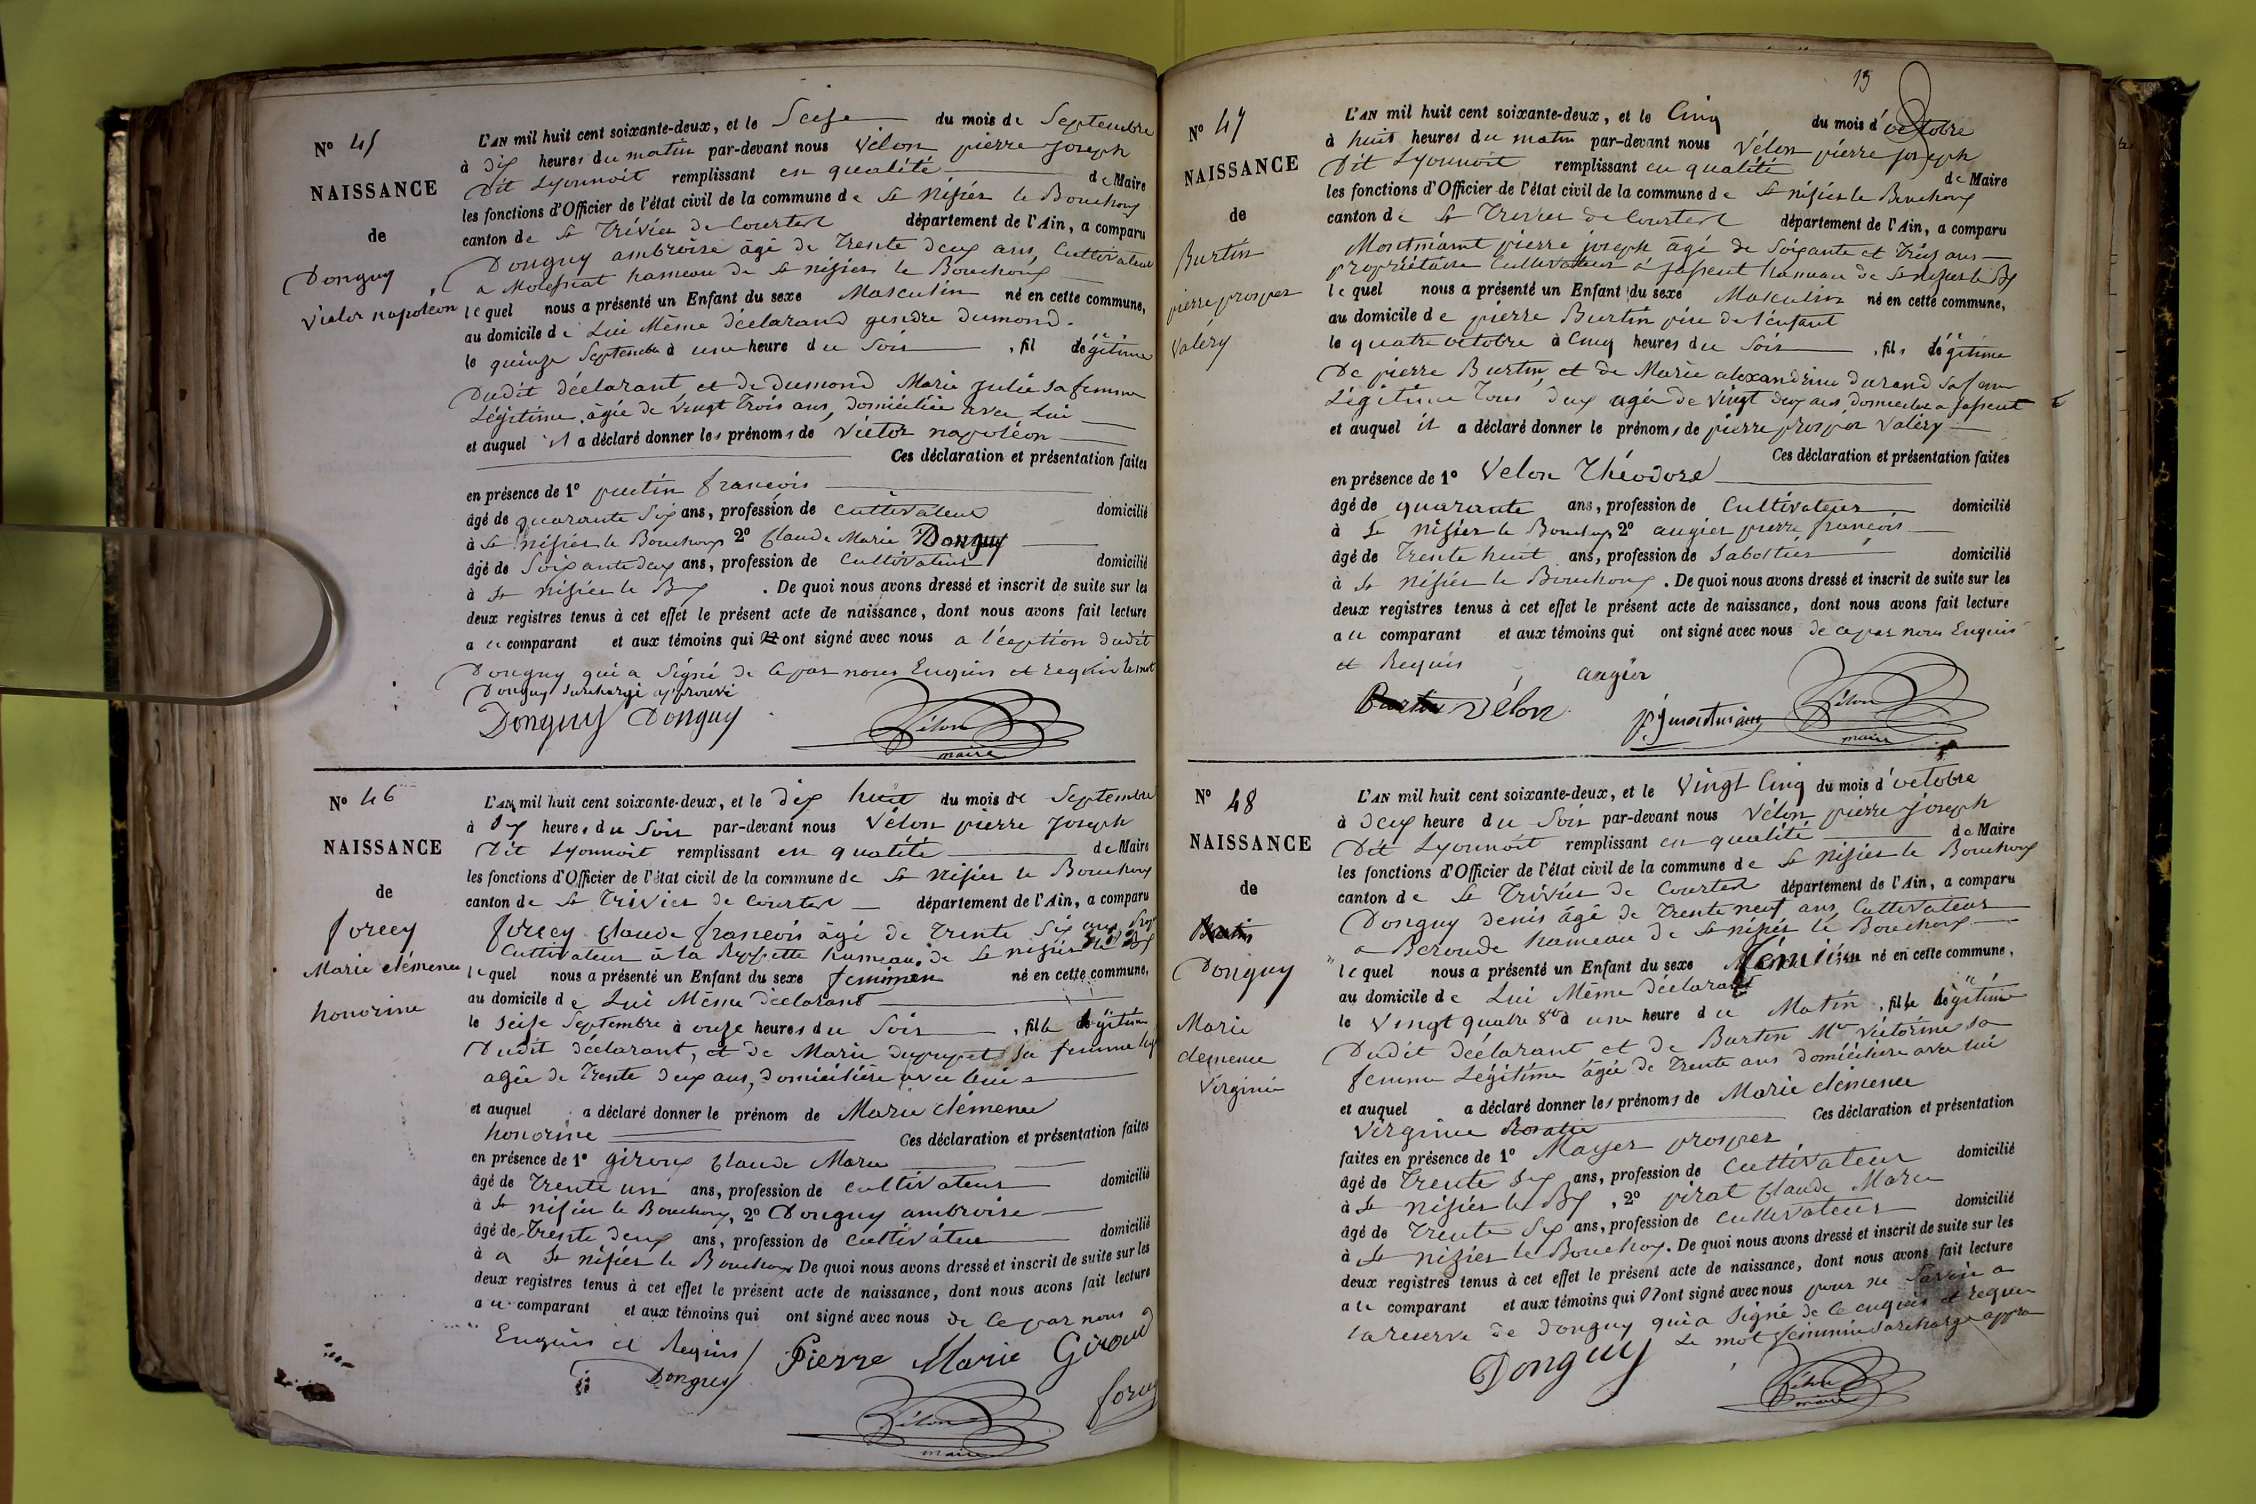 N° 45
NAISSANCE
de
Donguy
Victor napoléon
L'AN mil huit cent soixante-deux, et le Seize du mois de Septembre
à dix heures du matin par-devant nous Vélon pierre Joseph
Dit Lyonnoit remplissant en qualité de Maire
les fonctions d'Officier de l'état civil de la commune de St Nizier le Bouchoux
canton de St Trivier de Courtes département de l'Ain, a comparu
Donguy ambroise âgé de Trente deux ans, Cultivateur
a Molefriat hameau de St nizier le Bouchoux
lequel nous a présenté un Enfant du sexe Masculin né en cette commune,
au domicile de Lui Même déclarand gendre dumond.
le quinze Septembre à une heure du Soir, fil légitime
Dudit déclarant et de Dumond Marie Julie sa femme
Légitime, âgée de vingt Trois ans, domiciliée avec Lui
et auquel il a déclaré donner les prénoms de Victor napoléon
Ces déclaration et présentation faites
en présence de 1° putin françois
âgé de quarante Six ans, profession de cultivateur domicilié
à St Nizier le Bouchoux 2° Claude Marie Donguy
âgé de Soixante deux ans, profession de Cultivateur domicilié
à St nizier le Bx. De quoi nous avons dressé et inscrit de suite sur les
deux registres tenus à cet effet le présent acte de naissance, dont nous avons fait lecture
au comparant et aux témoins qui ont signé avec nous a l'éception dudit
Donguy qui a Signé de Ce par nous Enquis et requis le mot
Donguy surchargé approuvé
Donguy Donguy
Vélon
maire
N° 46
NAISSANCE
de
forecy
Marie clémence
honorine
L'AN mil huit cent soixante-deux, et le dix huit du mois de Septembre
à Six heures du Soir par-devant nous Vélon pierre Joseph
Dit Lyonnoit remplissant en qualité de Maire
les fonctions d'Officier de l'état civil de la commune de St Nizier le Bouchoux
canton de St Trivier de Courtes département de l'Ain, a comparu
forecy Claude françois âgé de Trente Six ans
Cultivateur à la hameau de St nizier le Bx
lequel nous a présenté un Enfant du sexe feminin né en cette commune,
au domicile de Lui Même déclarant
le seize Septembre à onze heures du Soir, fille légitime
Dudit déclarant, et de Marie dupupet sa femme
agée de Trente deux ans, domiciliée avec lui
et auquel a déclaré donner le prénom de Marie clémence
honorine Ces déclaration et présentation faites
en présence de 1° giroux Claude Marie
âgé de Trente un ans, profession de cultivateur domicilié
à St nizier le Bouchoux, 2° Donguy ambroise
âgé de Trente deux ans, profession de cultivateur domicilié
à a St nizier le Bouchoux De quoi nous avons dressé et inscrit de suite sur les
deux registres tenus à cet effet le présent acte de naissance, dont nous avons fait lecture
au comparant et aux témoins qui ont signé avec nous de Ce par nous
Enquis et Requis
Donguy Pierre Marie Giroud
Vélon
maire
13
N° 47
NAISSANCE
de
Burtin
pierre prosper
Valéry
L'AN mil huit cent soixante-deux, et le Cinq du mois d'octobre
à huit heures du matin par-devant nous Vélon pierre joseph
Dit Lyonnoit remplissant en qualité de Maire
les fonctions d'Officier de l'état civil de la commune de St nizier le Bouchoux
canton de St Trivier de Courtes département de l'Ain, a comparu
Montmiamt pierre joseph âgé de Soixante et Treize ans
propriétaire Cultivateur à jassent hameau de St nizier le Bx
lequel nous a présenté un Enfant du sexe Masculin né en cette commune,
au domicile de pierre Burtin père de l'enfant
le quatre octobre à Cinq heures du Soir, fils légitime
De pierre Burtin et de Marie alexandrine durand Sa fem
Légitime Tous deux agée de vingt deux ans, domiciliés a jassent
et auquel il a déclaré donner le prénoms de pierre prosper Valéry
Ces déclaration et présentation faites
en présence de 1° Velon Théodore
âgé de quarante ans, profession de Cultivateur domicilié
à St nizier le Bouchoux 2° augier pierre françois
âgé de Trente huit ans, profession de Sabottier domicilié
à St nizier le Bouchoux. De quoi nous avons dressé et inscrit de suite sur les
deux registres tenus à cet effet le présent acte de naissance, dont nous avons fait lecture
au comparant et aux témoins qui ont signé avec nous de ce par nous Enquis
et Requis
augier
Vélon
Vélon
maire
N° 48
NAISSANCE
de
Burtin
Donguy
Marie
clemence
Virginie
L'AN mil huit cent soixante-deux, et le Vingt Cinq du mois d'octobre
à deux heure du Soir par-devant nous Vélon pierre joseph
Dit Lyonnoit remplissant en qualité de Maire
les fonctions d'Officier de l'état civil de la commune de St Nizier le Bouchoux
canton de St Trivier de Courtes département de l'Ain, a comparu
Donguy denis âgé de Trente neuf ans, Cultivateur
a Beroude hameau de St nizier le Bouchoux
lequel nous a présenté un Enfant du sexe Féminin né en cette commune,
au domicile de Lui Même déclarant
le Vingt quatre 8bre à une heure du Matin, fille légitime
Dudit déclarant et de Burtin Mie victorine sa
femme Légitime âgée de Trente ans domiciliée avec lui
et auquel a déclaré donner les prénoms de Marie clémence
Virginie Rosalie Ces déclaration et présentation
faites en présence de 1° Mayer prosper
âgé de Trente Six ans, profession de Cultivateur domicilié
à St nizier le Bx, 2° pirat Claude Marie
âgé de Trente Six ans, profession de cultivateur domicilié
à St nizier le Bouchoux. De quoi nous avons dressé et inscrit de suite sur les
deux registres tenus à cet effet le présent acte de naissance, dont nous avons fait lecture
au comparant et aux témoins qui n'ont signé avec nous pour ne Savoir a
la reserve de Donguy qui a Signé de Ce enquis et requis
Le mot féminin surchargé appro
Donguy
Vélon
maire